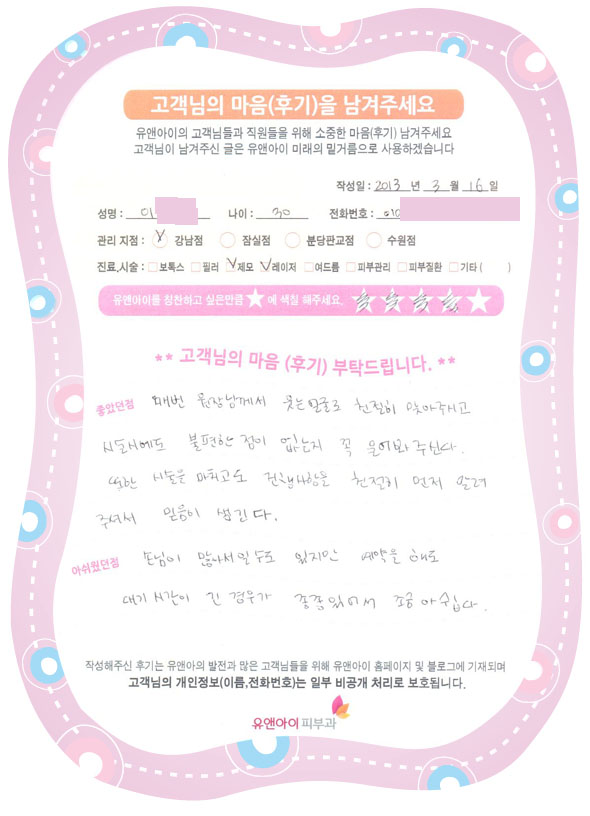 고객님의 마음(후기)을 남겨주세요
유앤아이의 고객님들과 직원들을 위해 소중한 마음(후기) 남겨주세요
고객님이 남겨주신 글은 유앤아이 미래의 밑거름으로 사용하겠습니다
작성일 : 2013 년 3 월 16 일
성명 : 이 나이 : 30 전화번호 : 010
관리 지점 : 강남점 잠실점 분당판교점 수원점
진료,시술 : 보톡스 필러 제모 레이저 여드름 피부관리 피부질환 기타 ( )
유앤아이를 칭찬하고 싶은만큼 ★ 에 색칠 해주세요. ★★★★★
** 고객님의 마음 (후기) 부탁드립니다. **
좋았던점 매번 원장님께서 웃는얼굴로 친절히 맞아주시고
시술시에도 불편한 점이 없는지 꼭 물어봐 주신다.
또한 시술을 마치고도 진행사항을 친절히 먼저 알려
주셔서 믿음이 생긴다.
아쉬웠던점 손님이 많아서일 수도 있지만 예약을 해도
대기시간이 긴 경우가 종종있어서 조금 아쉽다.
작성해주신 후기는 유앤아의 발전과 많은 고객님들을 위해 유앤아이 홈페이지 및 블로그에 기재되며
고객님의 개인정보(이름,전화번호)는 일부 비공개 처리로 보호됩니다.
유앤아이 피부과